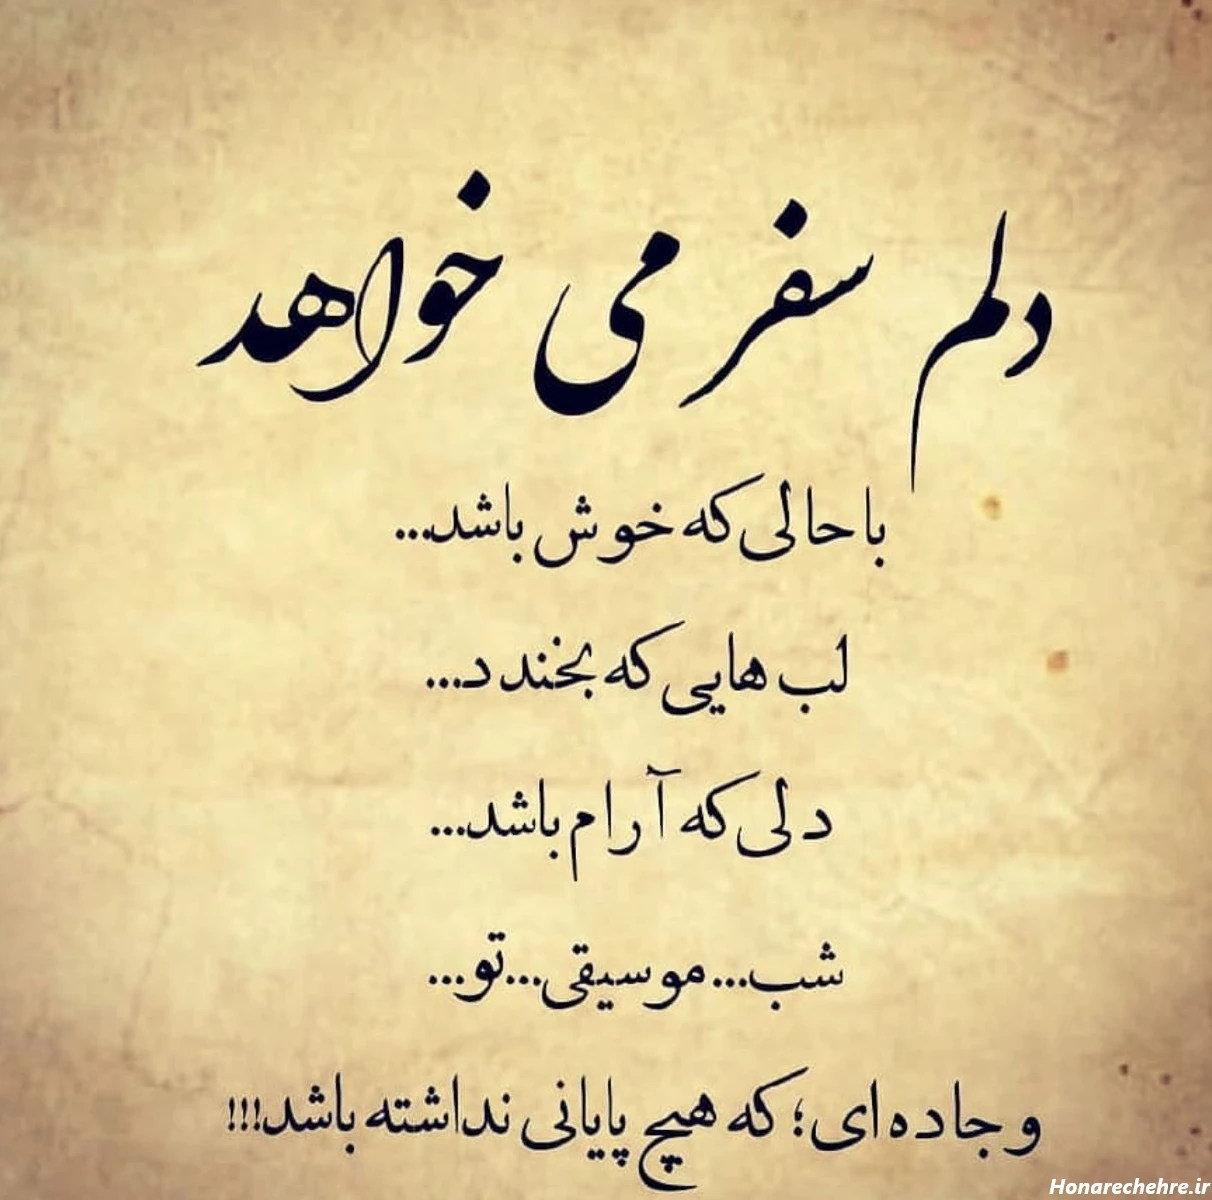 دلم سفر می خواهد
با حالی که خوش باشد...
لب هایی که بخندد...
دلی که آرام باشد...
شب...موسیقی...تو...
و جاده ای؛ که هیچ پایانی نداشته باشد!!!
Honarechehre.ir